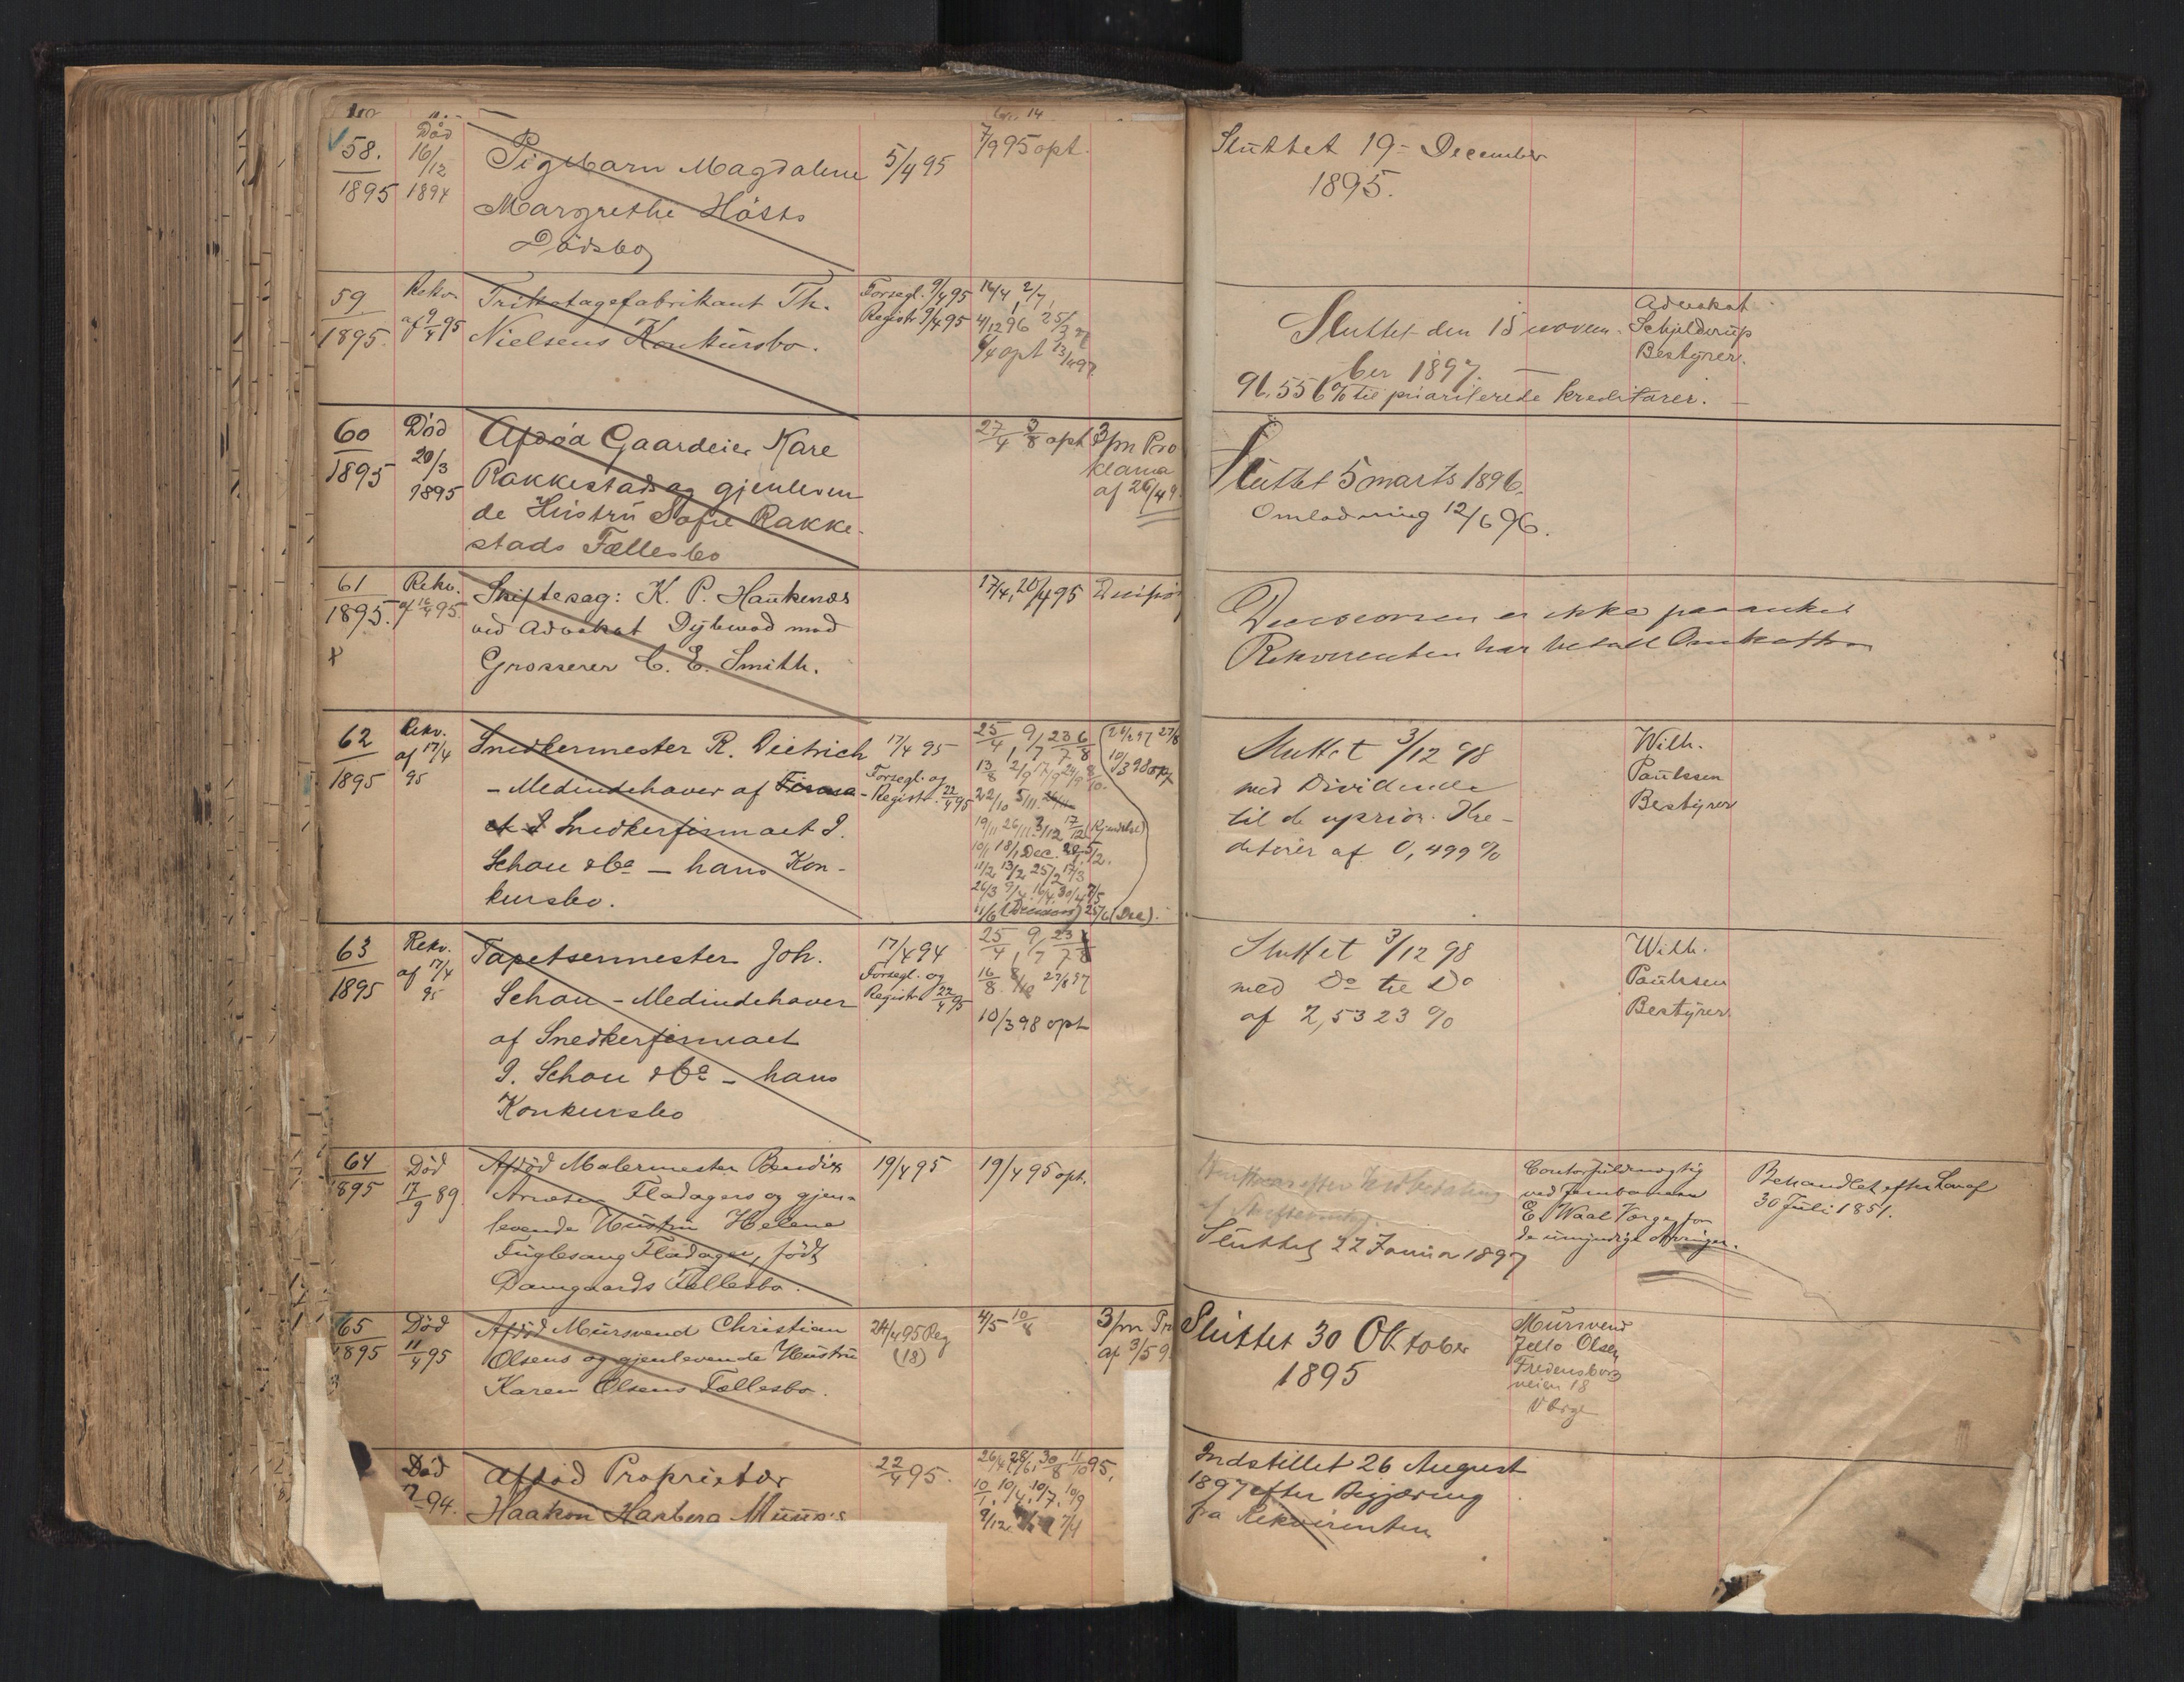 58.
1895
Död
16/12
1894
Pigebarn Magdalene
Margrethe Hösts
Dödsbo
5/4 95
7/9 95 opt.
Sluttet 19 - December
1895.
59
1895.
Rekv.
af 9/4 95
Trikotagefabrikant Th.
Nielsens Konkursbo.
Forsegl. 9/4 95
Registr. 9/4 95
16/4, 2/7,
4/12 96 25/3
opt 13/4 97
Sluttet den 15 novem-
ber 1897.
96.556% til prioriterede kreditorer.
Advokat
Schjelderup
Bestyrer.
60
1895
Död
20/3
1895
Afdöd Gaardeier Kare
Rakkestads og gjenleven
de Hustru Sofie Rakke-
stads Fællesbo
27/4 3/8 opt
3/m Pro
klama
af 26/4 9
Sluttet 5 marts 1896.
Omlodning 12/6 96.
61
1895.
Rekv.
af 16/4 95
Skiftesag: K. P. Haukenæs
ved Advokat Dybwad mod
Grosserer C. E. Smith.
17/4, 20/4 95
Decisionen er ikke paaanket
Rekvirenten har betalt
62
1895
Rekv.
af 17/4
95
Snedkermester R. Dietrich
- Medindehaver af
Snedkerfirmaet J.
Schou & Co - hans Kon-
kursbo.
17/4 95
Forsegl. og
Registr. 22/4 95
25/4, 9/7 23/7 6/8
13/8 2/9 17/9 24/9 8/10.
22/10 5/11
19/11 26/11 3/12 17/12 (Kjendelse)
10/1 18/1 Dec.
11/2 13/2 25/2 17/3
26/3 9/4 16/4 30/4 7/5
11/6 (Decision) 25/6 (Dec).
10/3 98 opt
Sluttet 3/12 98
med Dividende
til de uprior. Kre-
ditorer af 0,499 %
Wilh.
Paulssen
Bestyrer
63
1895
Rekv.
af 17/4
95
Tapetsermester Joh.
Schou - Medindehaver
af Snedkerfirmaet
J. Schou & Co - hans
Konkursbo
17/4 94
Forsegl. og
Registr. 22/4 95
25/4, 9/7 23/7
16/8 27/8 97
10/3 98 opt
Sluttet 3/12 98
med Do til Do
af 2,5323 %
Wilh.
Paulssen
Bestyrer.
64
1895
Död
17/9 89.
Afdöd Malermester Bendix
Fladagers og gjen-
levende Hustru Helene
Fuglesang Fladager, födt
Damgaards Fællesbo.
19/4 95
19/4 95 opt.
Sluttet 22 Januar 1897
Contorfuldmægtig
ved Jernbanen
E. Waal Værge for
de umyndige Arvinger.
Behandlet efter Lov af
30 Juli 1851.
65
1895
Död
11/4 95
Afdöd Mursvend Christian
Olsens og gjenlevende Hustru
Karen Olsens Fællesbo.
24/4 95 Reg
(18)
4/5 10/8
3/m Pr
af 3/5 9
Sluttet 30 Oktober
1895
Mursvend
Olsen
Fredensborg
veien 18
Værge
Död
94.
Afdöd Proprietær
Haakon
22/4 95.
26/4, 28/6, 30/8 11/10 95,
10/1, 10/4, 10/7, 10/9
9/12
Indstillet 26 August
1897 efter Begjæring
fra Rekvirenten